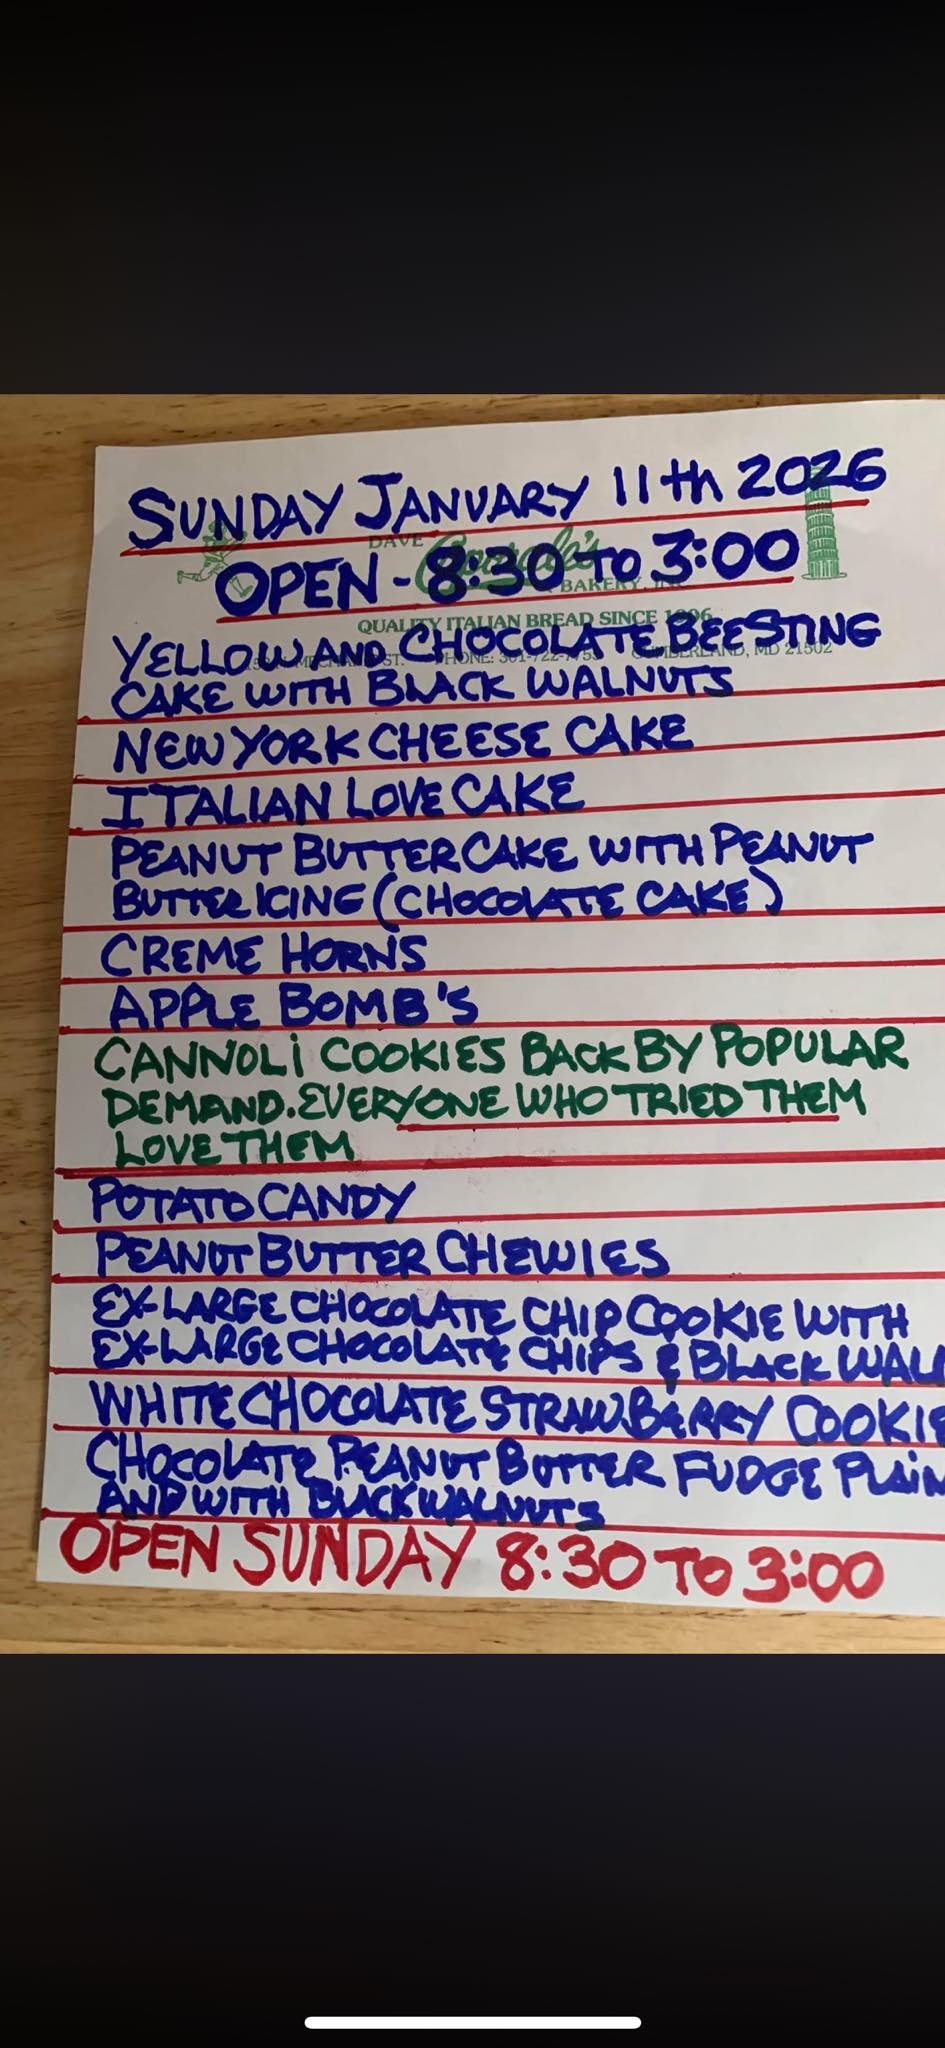 SUNDAY JANUARY 11th 2026
DAVE
OPEN - 8:30 TO 3:00
BAKERY, INC
QUALITY ITALIAN BREAD SINCE 1996
YELLOW AND CHOCOLATE BEE STING
ST. PHONE: 301-722-7755 CUMBERLAND, MD 21502
CAKE WITH BLACK WALNUTS
NEW YORK CHEESE CAKE
ITALIAN LOVE CAKE
PEANUT BUTTER CAKE WITH PEANUT
BUTTER ICING (CHOCOLATE CAKE)
CREME HORNS
APPLE BOMB'S
CANNOLI COOKIES BACK BY POPULAR
DEMAND. EVERYONE WHO TRIED THEM
LOVE THEM
POTATO CANDY
PEANUT BUTTER CHEWIES
EX-LARGE CHOCOLATE CHIP COOKIE WITH
EX-LARGE CHOCOLATE CHIPS & BLACK WAL
WHITE CHOCOLATE STRAWBERRY COOKIE
CHOCOLATE PEANUT BUTTER FUDGE PLAIN
AND WITH BLACK WALNUTS
OPEN SUNDAY 8:30 TO 3:00